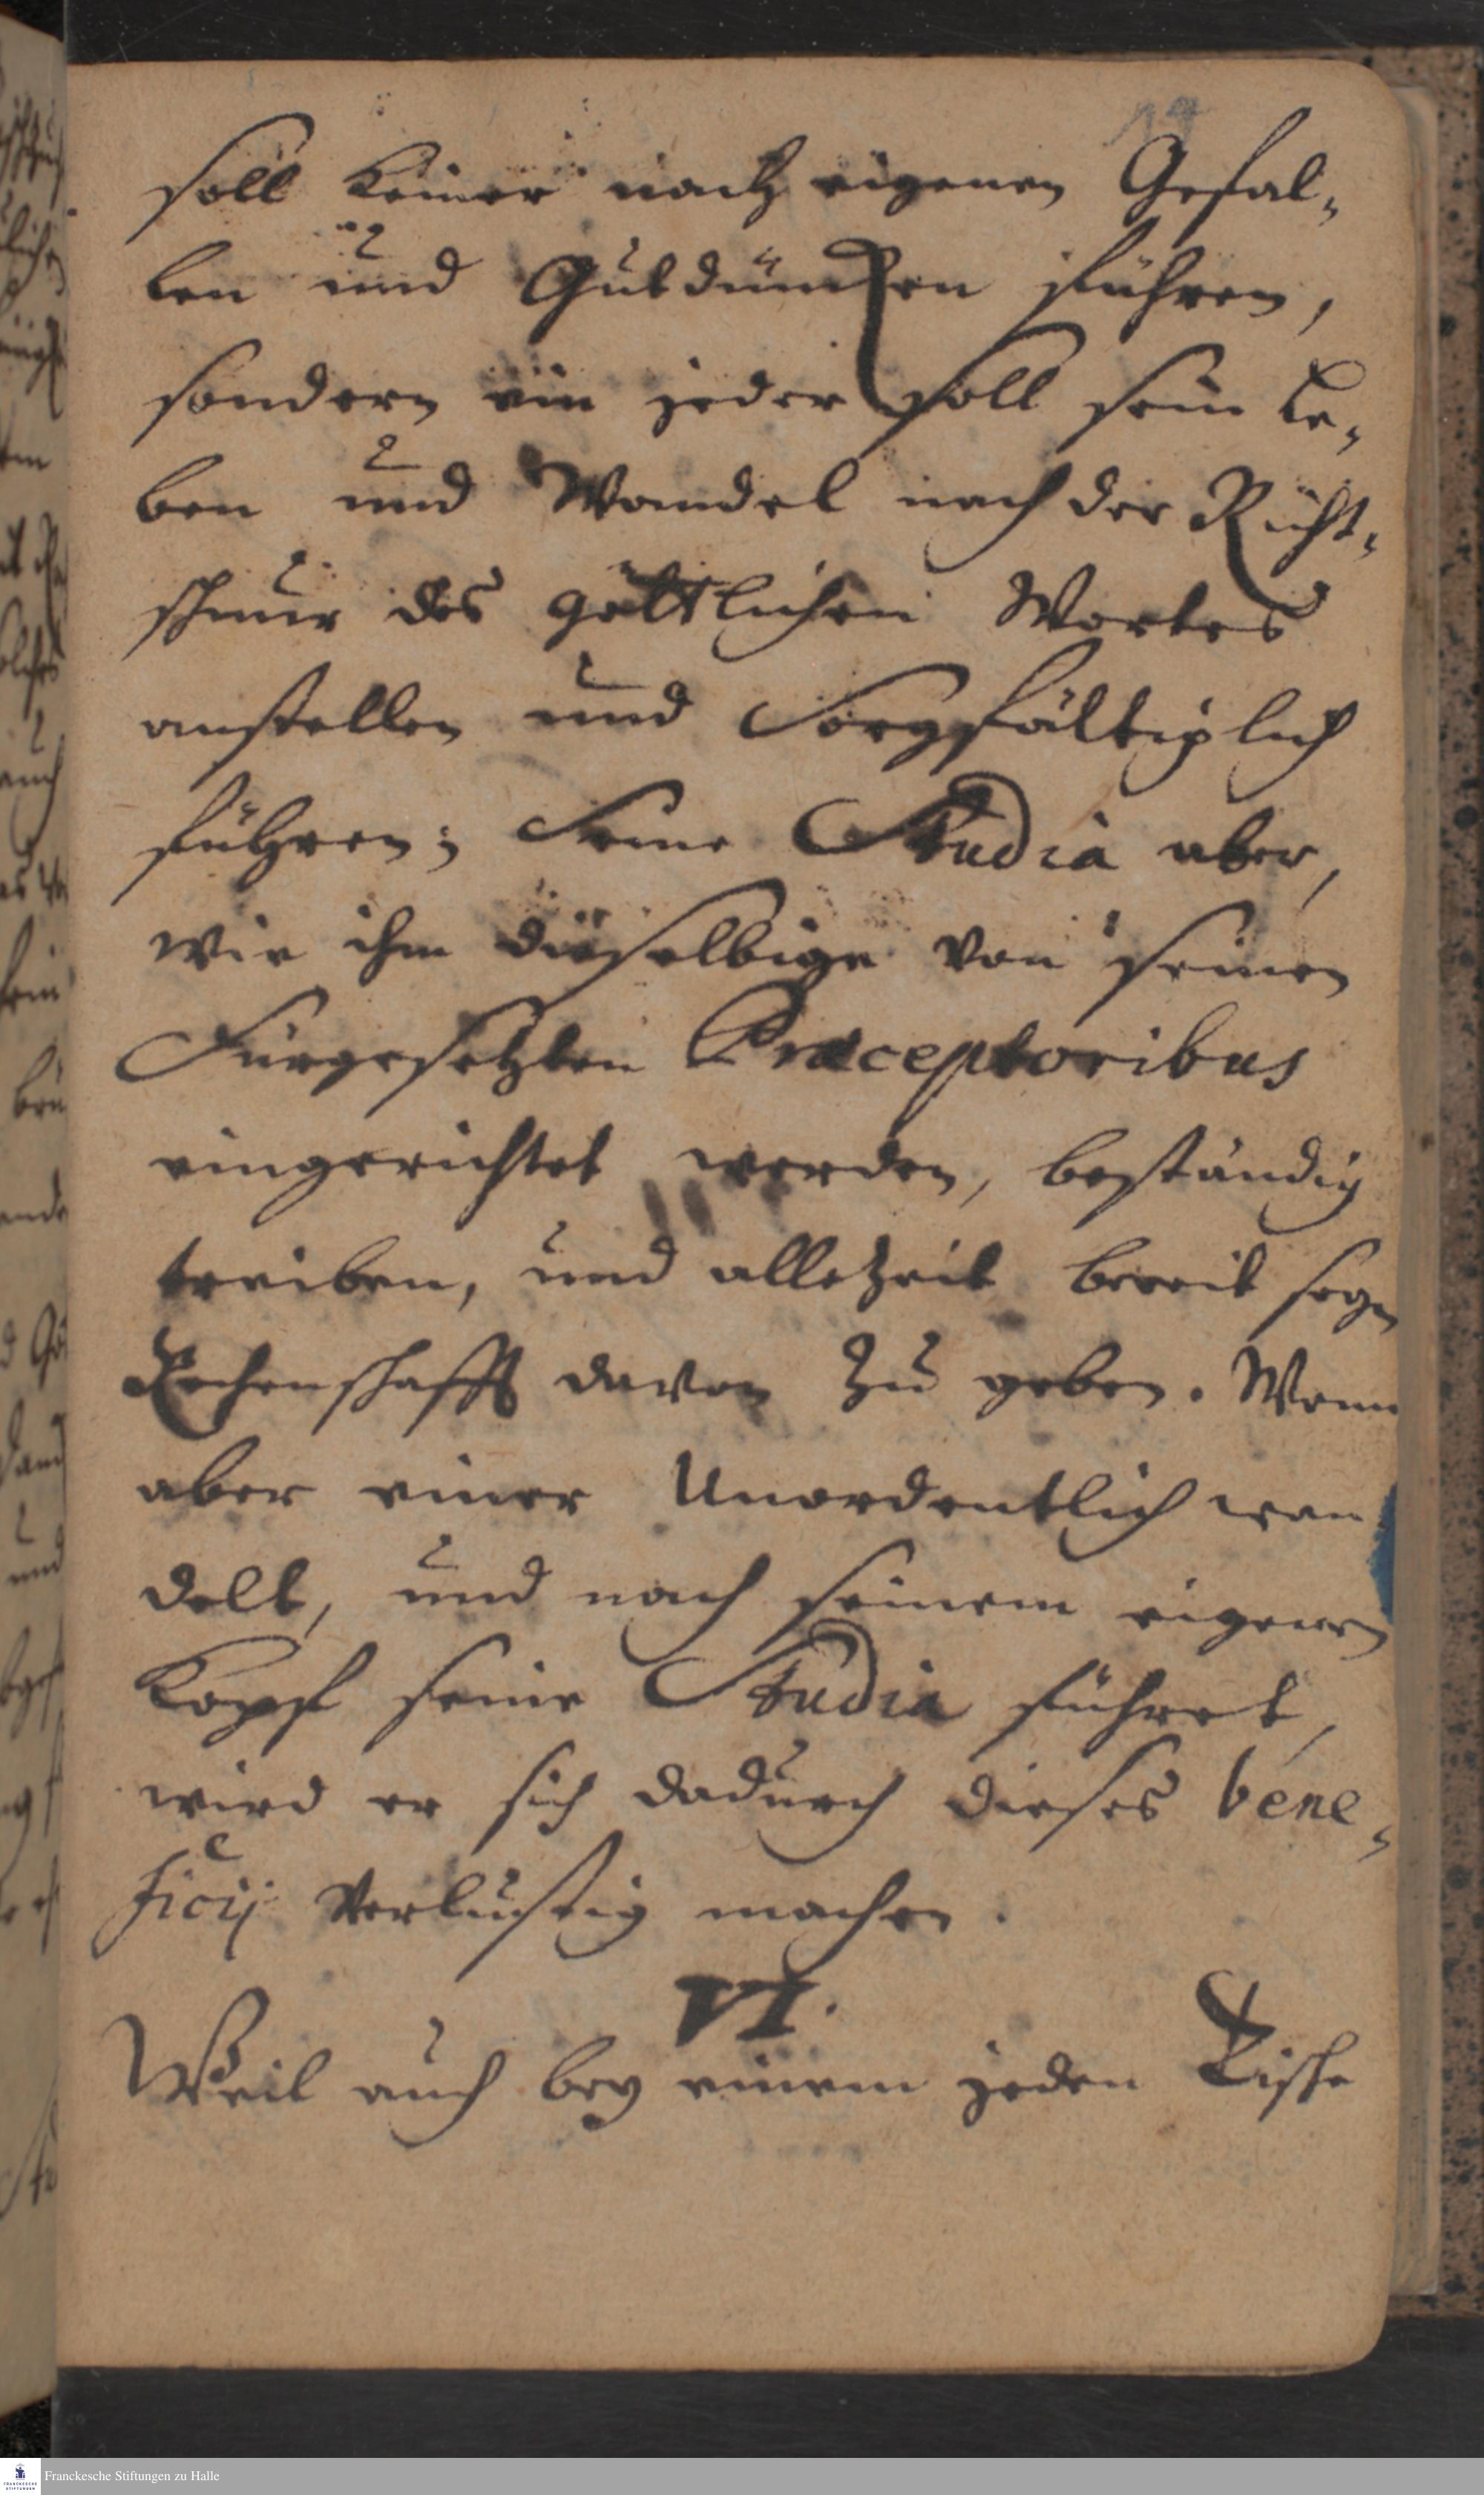 14
soll keiner nach eigenen Gefal-
len und Gutdüncken führen,
sondern ein jeder soll sein Le-
ben und Wandel nach der Richt-
schnur des göttlichen Wortes
anstellen und Sorgfältiglich
führen; Seine Studia aber,
wie ihm dieselbige von seinen
Fürgesetzten Præceptoribus
eingerichtet werden, beständig
treiben, und allezeit bereit seyn
Rechenschafft davon zu geben. Wenn
aber einer Unordentlich wan
delt, und nach seinem eigenen
Kopf seine Studia führet,
wird er sich dadurch dieses bene-
ficij verlustig machen.
VI.
Weil auch bey einem jeden Tische
Franckesche Stiftungen zu Halle